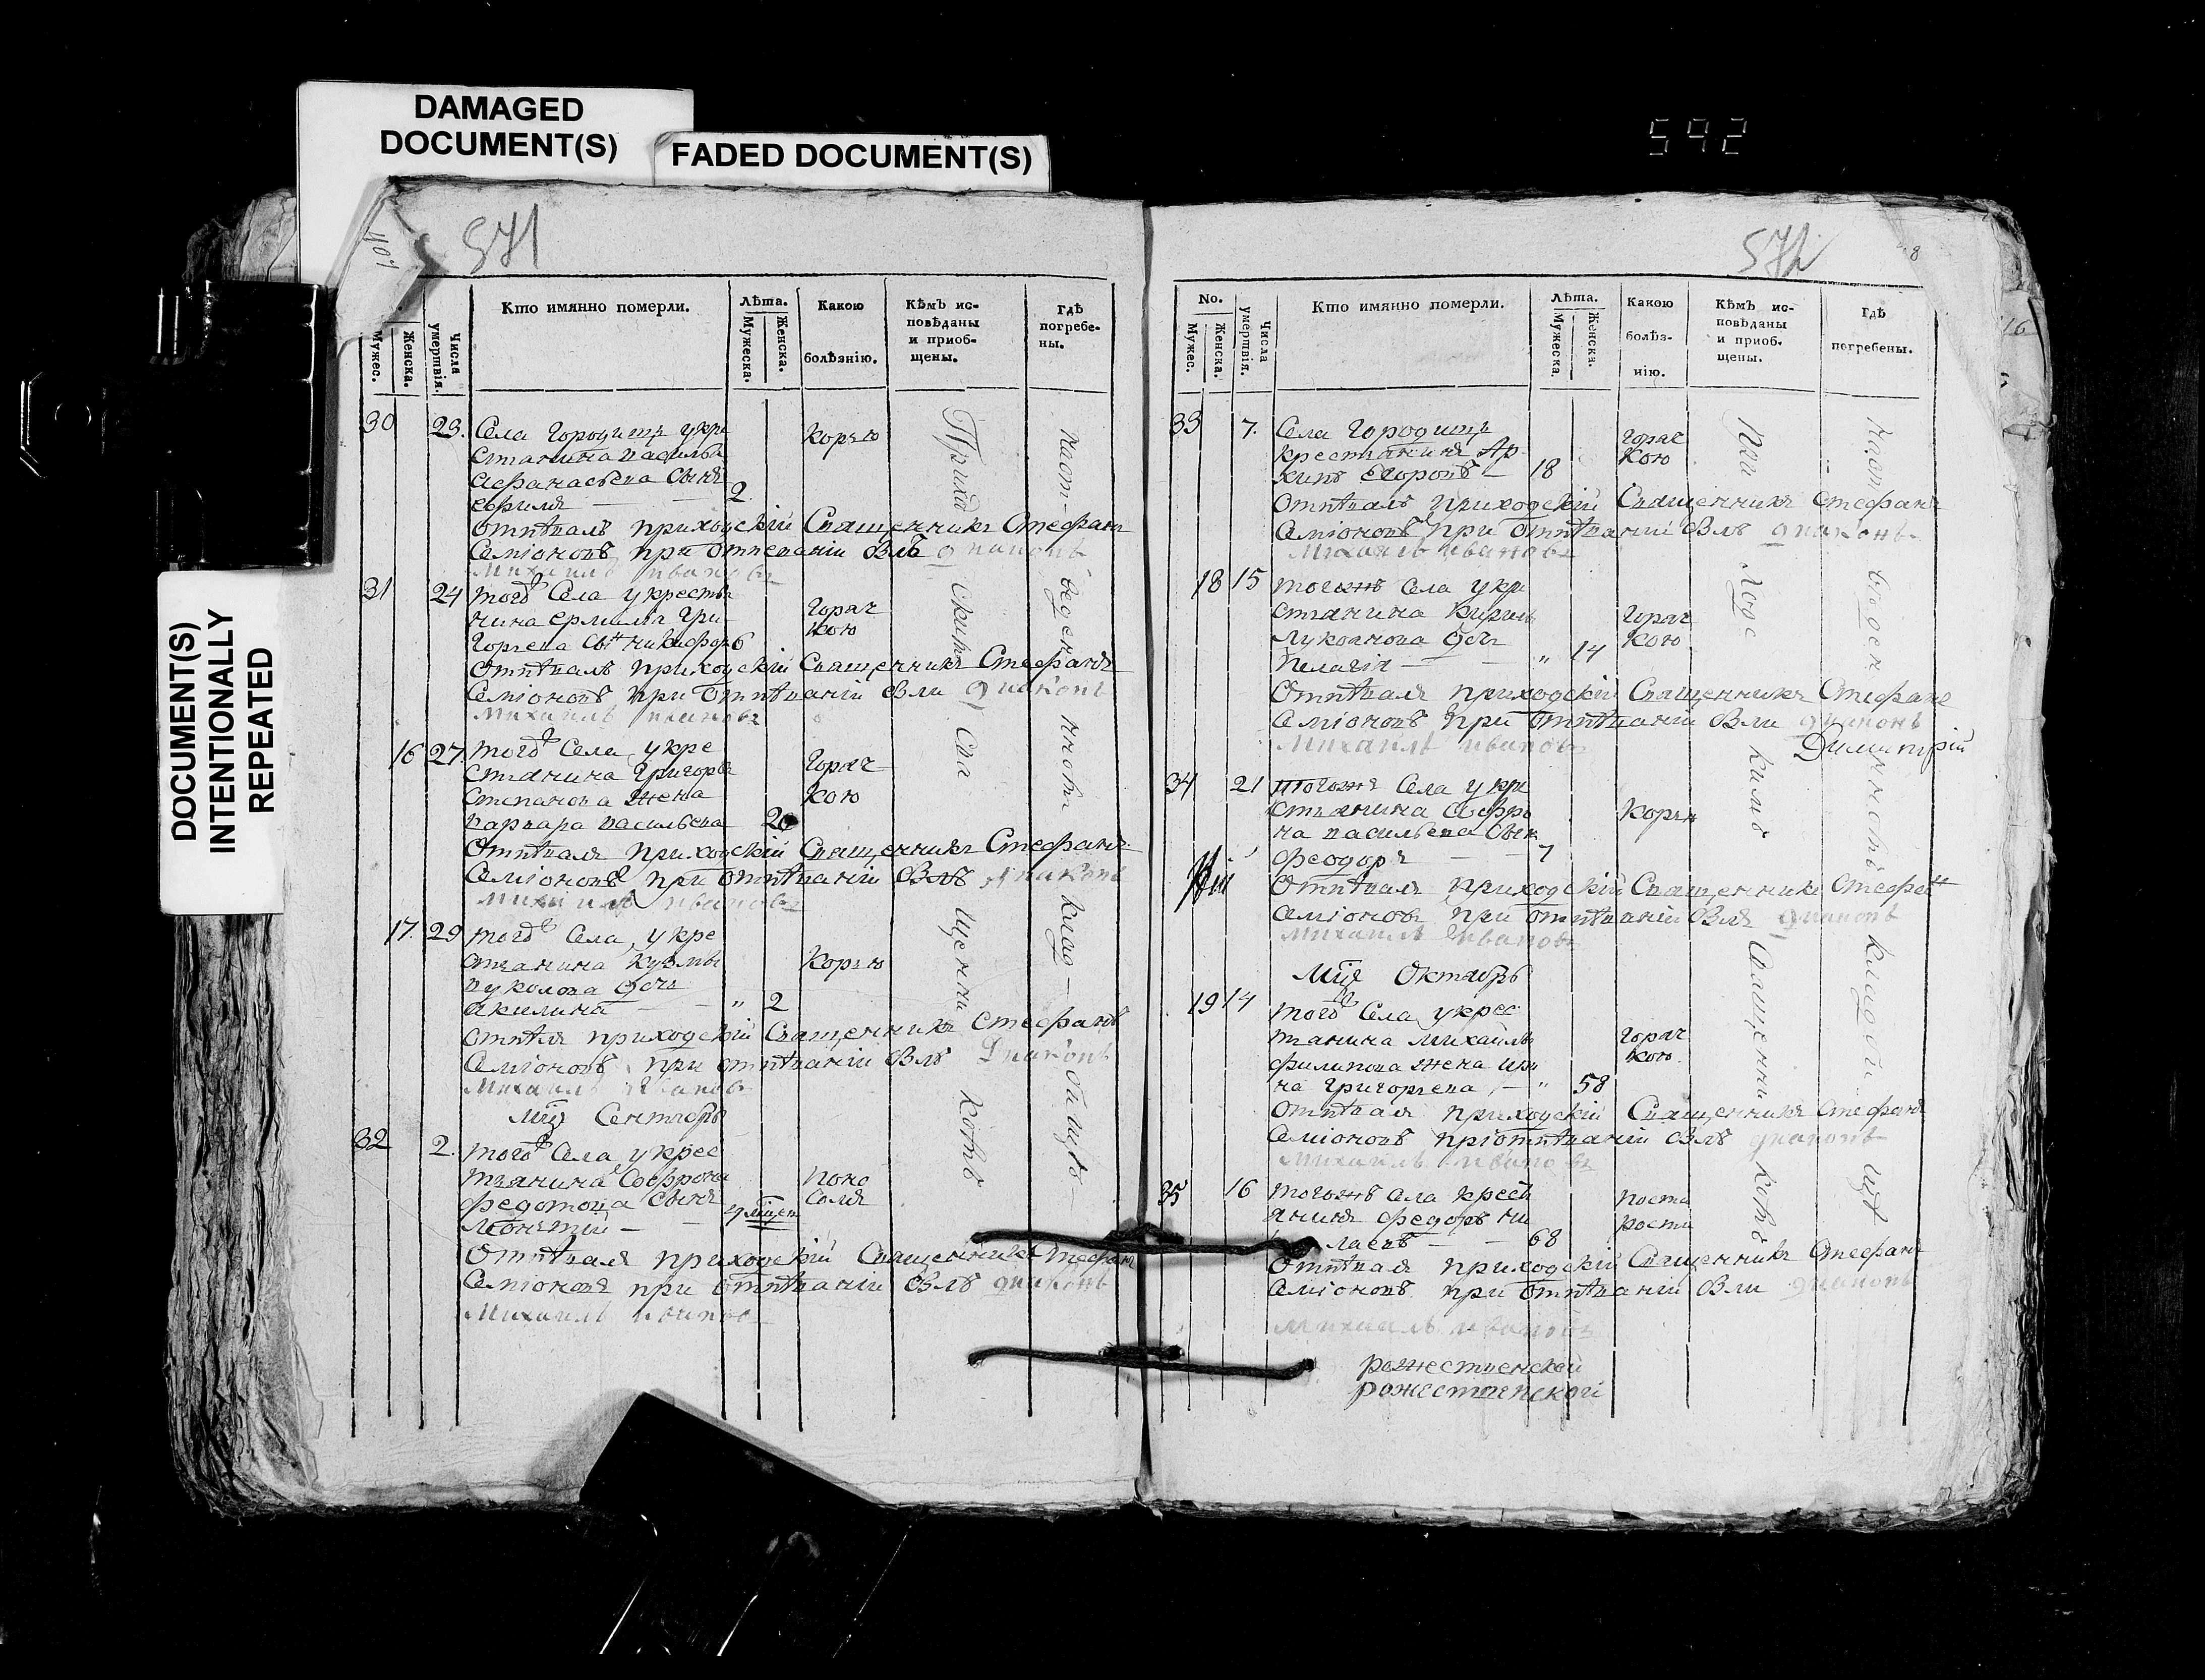 DAMAGED
DOCUMENT(S)
FADED DOCUMENT(S)
DOCUMENT(S)
INTENTIONALLY
REPEATED
592
571
107
Мужес.
Женска.
Числа умертвія.
Кто имянно померли.
Лѣта.
Мужеска.
Женска.
Какою
болѣзнію.
Кѣмъ ис-
повѣданы
и приоб-
щены.
Гдѣ
погребе-
ны.
30 23. Села Городищъ укре
стьянина васильа
Афанасьева Сынъ
2
корью
Отпѣвалъ приходскій Священникъ Стефанъ
Семіоновъ при отпеваніи Былъ диаконъ
Михаилъ ивановъ
31 24 того Села укрестья
нина ермила Гри
горьева Сынъ никифоръ
Горяч
кою
Отпѣвалъ приходскій Священникъ Стефанъ
Семіоновъ при отпѣваніи Были диаконъ
Михаилъ ивановъ
16 27 того Села укре
стьянина Григорья
Степанова жена
варвара васильева 20
Горяч
кою
Отпѣвалъ приходскій Священникъ Стефанъ
Семіоновъ при отпѣваніи Былъ диаконъ
Михаилъ ивановъ
17. 29 того Села, укре
стьянина Кузмы
вуколова дочь
акилина — „ 2
Корью
Отпѣлъ приходскій Священникъ Стефанъ
Семіоновъ при отпѣваніи Былъ диаконъ
Михаилъ Ивановъ
Мцъ Сентябрь
32 2. того Села укрес
тьянина Софрона
федотова Сынъ
Леонтій —
Отпѣвалъ приходскій Священникъ Стефанъ
Семіоновъ при отпѣваніи Былъ диаконъ
Михаилъ ивановъ
Приход скимъ Свя щенни комъ
наот веден номъ клад бищѣ
572
8
No.
Мужес.
Женска.
Числа умертвія.
Кто имянно померли.
Лѣта.
Мужеска.
Женска.
Какою
болѣз-
нію.
Кѣмъ ис-
повѣданы
и приоб-
щены.
Гдѣ
погребены.
33 7. Села Городищъ
крестьянинъ Ар
хипъ Егоровъ — 18
горяч
кою
Отпѣвалъ приходскій Священникъ Стефанъ
Семіоновъ при отпѣваніи Былъ диаконъ
Михаилъ ивановъ
18 15 тогожъ Села укре
стьянина Кирилы
Лукоанова дочь
Пелагія — „ 14
Горяч
кою
Отпѣвалъ приходскій Священникъ Стефанъ
Семіоновъ при отпѣваніи Были диаконъ
Михаилъ ивановъ
Димитрій
34 21 тогожъ Села укре
стьянина Софро
на васильева Сынъ
феодоръ — 7
Корью
Отпѣвалъ приходскій Священникъ Стефанъ
Семіоновъ при отпѣваніи Былъ диаконъ
Михаилъ ивановъ
Мцъ Октябрь
19 14 того Села укрес
тьянина Михайлы
филипова жена ири
на Григорьева, — „ 58
Горяч
кою
Отпѣвалъ приходскій Священникъ Стефанъ
Семіоновъ приотпѣваніи Былъ диаконъ
Михаилъ ивановъ
35 16 тогожъ села крест
янинъ федоръ ни
лаевъ — 68
поста
рости
Отпѣвалъ приходскій Священникъ Стефанъ
Семіоновъ при отпѣваніи Были диаконъ
Михаилъ ивановъ
рожественской
рожественской
16